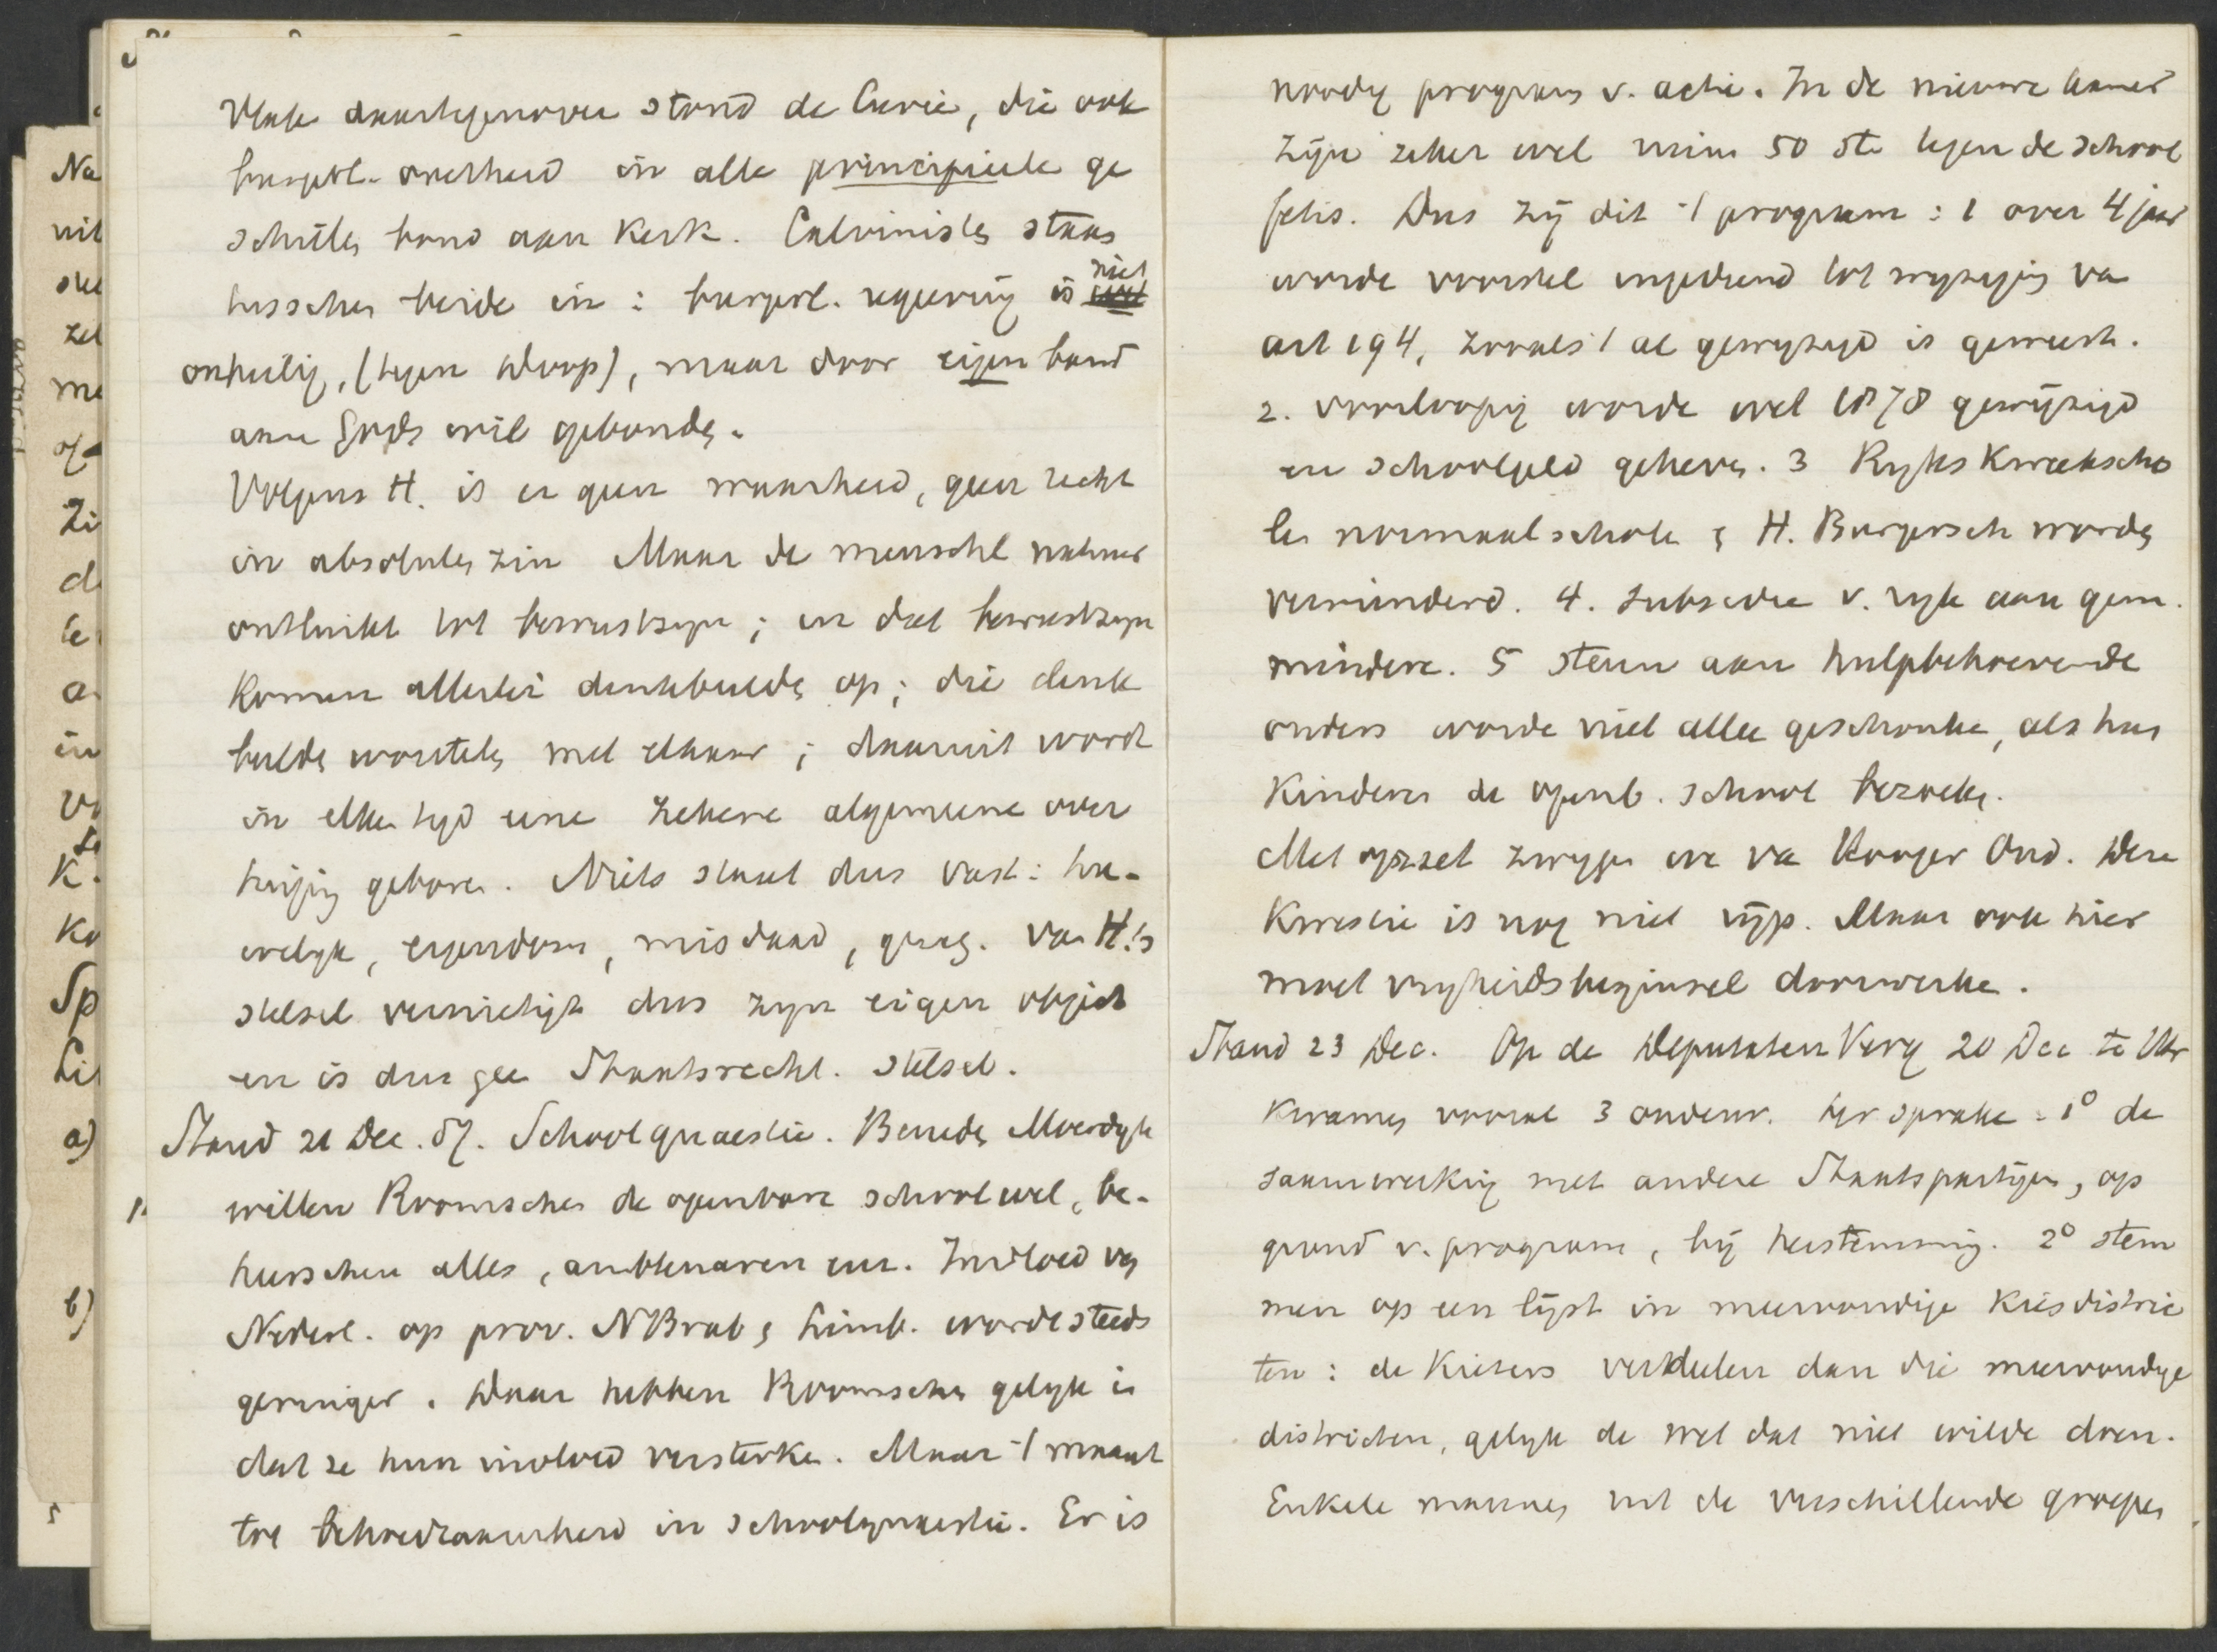 Vlak daartegenover stond de Curie, die ook
burgerl. overheid in alle principieele ge
schillen bond aan Kerk. Calvinisten staan
tusschen beide in: burgerl. regeering is niet
onheilig, (tegen Doop), maar door eigen band
aan Gods wil gebonden.
Volgens H. is er geen waarheid, geen recht
in absoluten zin Maar de menschl natuur
ontluikt tot bewustzyn; in dat bewustzyn
komen allerlei denkbeelden op; die denk
beelden worstelen met elkaar; daaruit wordt
in elken tyd eene zekere algemeene over
tuiging geboren. Niets staat dus vast: hu-
welyk, eigendom, misdaad, gezag. Van H.'s
stelsel vernietigt dus zyn eigen object
en is dus geen Staatsrecht. stelsel.
Stand 21 Dec. 87. Schoolquaestie. Beneden Moerdyk
willen Roomschen de openbare school wel, be-
heerschen alles, ambtenaren enz. Invloed van
Nederl. op prov. NBrab & Limb. worde steeds
geringer. Daar hebben Roomschen gelyk in
dat ze hun invloed versterken. Maar 't maant
tot behoedzaamheid in schoolquaestie. Er is
noodig program v. actie. In de nieuwe kamer
zijn zeker wel min 50 ste tegen de school
fetis. Dus zij dit 't program: 1 over 4 jaar
worde voorstel ingediend tot wyzeging van
art 194, zooals 't al gewyzigd is geweest.
2. voorloopig worde wet 1878 gewijzigd
en schoolgeld geheven. 3 Ryks Kweekscho
len normaalscholen & H. Burgersch worden
verminderd. 4. Subsidie v. ryk aan gem.
mindere. 5 Steun aan hulpbehoevende
ouders worde niet alleen geschonken, als hun
kinderen de openb. school bezoeken.
Met opzet zwygen we van Hooger Ond. Deze
Kwestie is nog niet rijp. Maar ook hier
moet vryheidsbeginsel doorwerken.
Stand 23 Dec. Op de Deputaten Verg 20 Dec te Utr
kwamen vooral 3 onderw. ter sprake: 1º de
saamwerking met andere Staatspartijen, op
grond v. program, bij herstemming. 2º stem
men op een lijst in meervoudige Kiesdistric
ten: de Kiezers verdeelen dan die meervoudige
districten, gelyk de wet dat niet wilde doen.
Enkele mannen uit de verschillende groepen